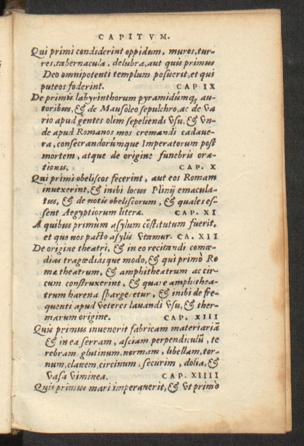 CAPITVM.
Qui primi condiderint oppidum, muros, tur-
res, tabernacula, delubra, aut quis primus
Deo omnipotenti templum posuerit, et qui
puteos foderint. CAP IX
De primis labyrinthorum pyramidumq; au-
toribus, & de Mausoleo sepulchro, ac de va
rio apud gentes olim sepeliendi vsu, & vn-
de apud Romanos mos cremandi cadaue-
ra, consecrandorúmque Imperatorum post
mortem, atque de origine funebris ora-
tionis. CAP. X
Qui primi obeliscos fecerint, aut eos Romam
inuexerint, & inibi locus Plinij emacula-
tus, & de notis obeliscorum, & quales es-
sent Aegyptiorum literæ. CAP. XI
A quibus primum asylum cõstitutum fuerit,
et quo nos pacto asylis vtamur. CA. XII
De origine theatri, & in eo recitandi comœ-
dias tragœdiasque modo, & qui primò Ro
mæ theatrum, & amphitheatrum ac cir-
cum construxerint, & quare amphithea-
trum harena spargeretur, & inibi de fre-
quenti apud veteres lauandi vsu, & ther-
marum origine. CAP. XIII
Quis primus inuenerit fabricam materiariã
& in ea serram, asciam, perpendiculũ, te
rebram, glutinum, normam, libellam, tor-
num, clauem, circinum, securim, dolia, &
vasa viminea. CAP. XIIII
Quis primus mari imperauerit, & vt primò